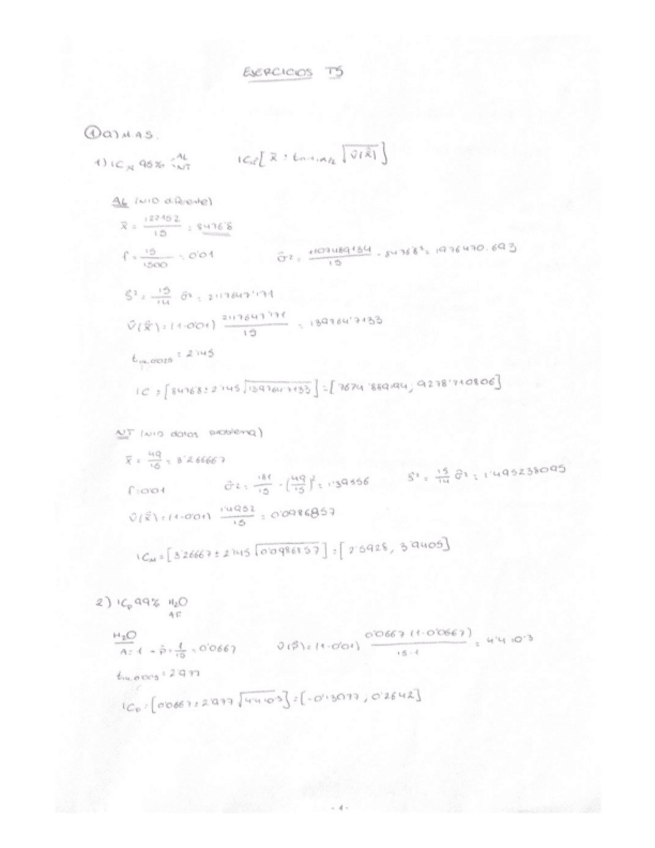 EJERCICIOS T5
① a) MAS.
1) IC 95% AL NT IC [ x̄ ± √V̂(x̄) ]
AL
x̄ = 127152 / 15 = 8476'8
f = 15 / 1500 = 0'01 σ̂² = / 15 - 8476'8² = 1976470.693
Ŝ² = 15/14 σ̂² = 2117647'171
V̂(x̄) = (1-0'01) 2117647'171 / 15 = 139764'7133
= 2'145
IC = [8476'8 ± 2'145 √139764'7133] = [7674'889194, 9278'710806]
NT (NIO datos problema)
x̄ = 49/15 = 3'266667
f = 0'01 σ̂² = 181/15 - (49/15)² = 1'39556 Ŝ² = 15/14 σ̂² = 1'495238095
V̂(x̄) = (1-0'01) 1'4952 / 15 = 0'0986857
IC = [3'26667 ± 2'145 √0'0986857] = [2'5928, 3'9405]
2) IC 99% H₂O
H₂O
A = 1 → p̂ = 1/15 = 0'0667 V̂(p̂) = (1-0'01) 0'0667 (1-0'0667) / 15-1 =
= 2'977
IC = [0'0667 ± 2'977 ] = [-0'13077, 0'2642]
- 1 -